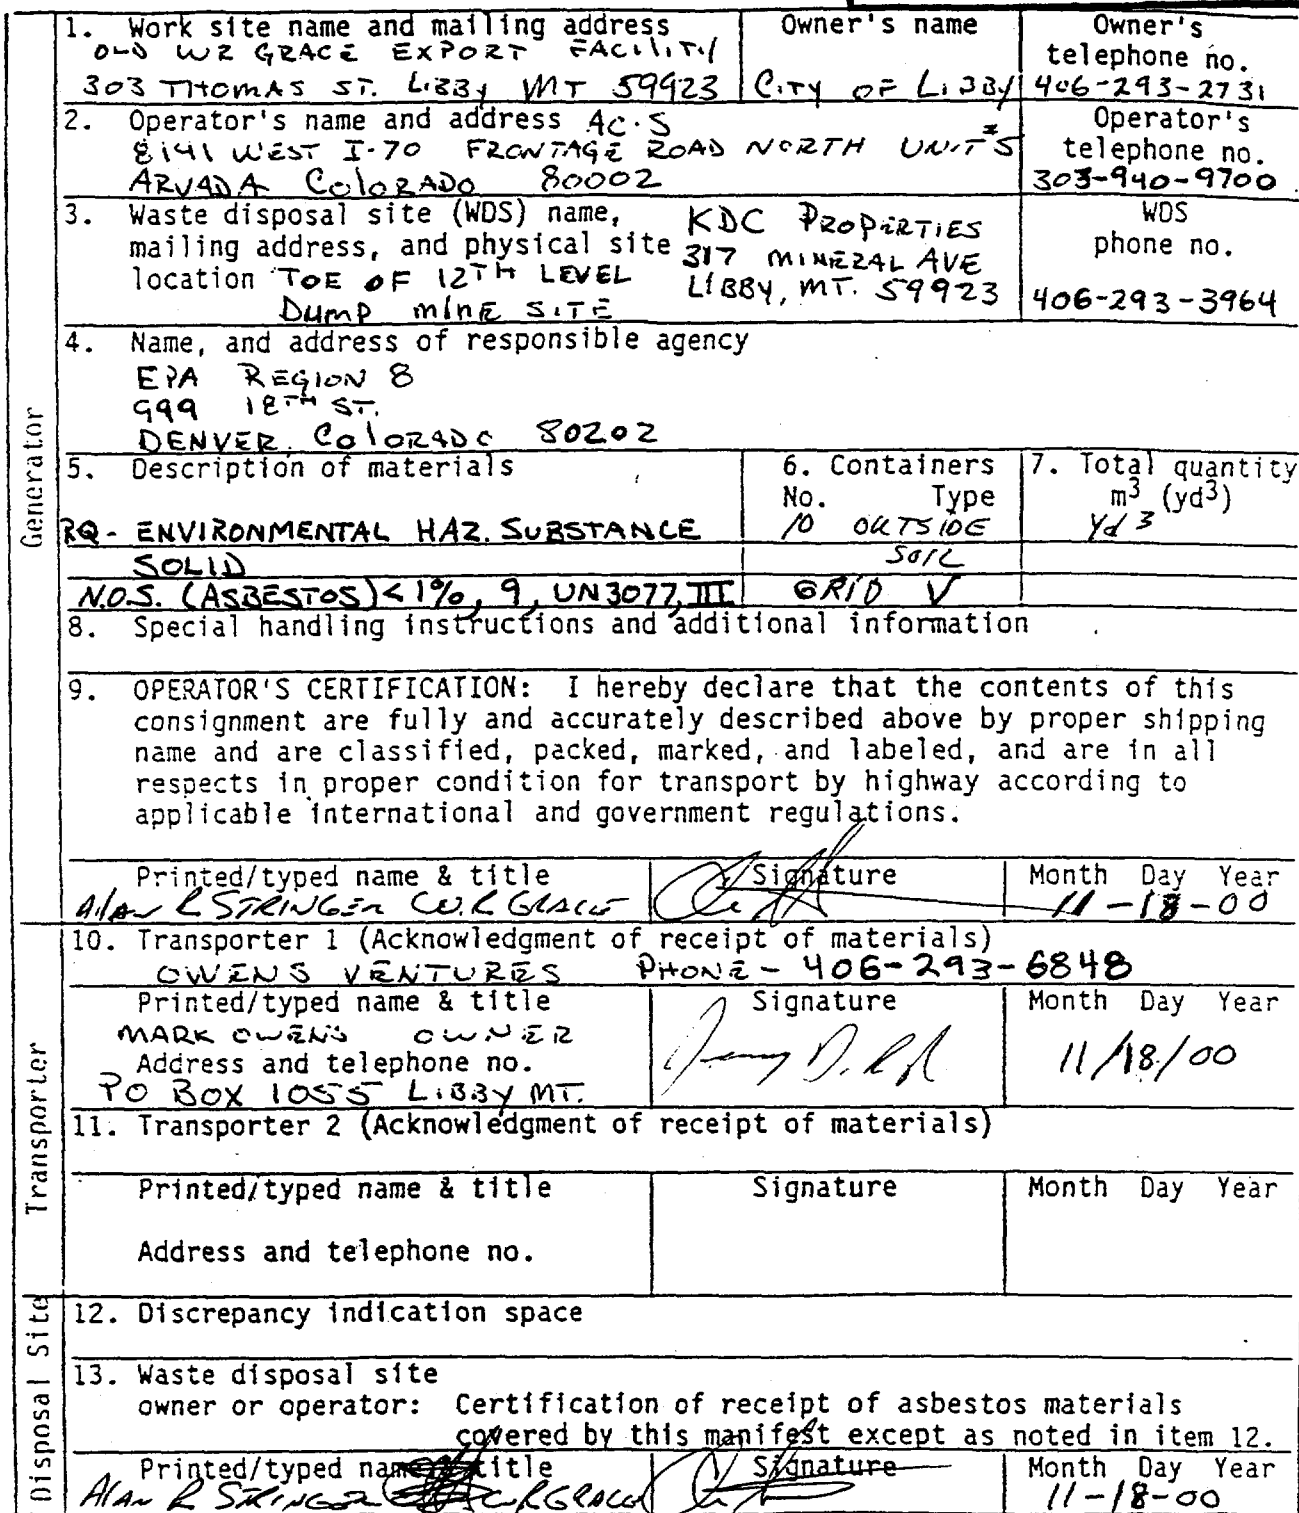 1. Work site name and mailing address
OLD WR GRACE EXPORT FACILITY
303 THOMAS ST. LIBBY MT 59923
Owner's name
CITY OF LIBBY
Owner's
telephone no.
406-293-2731
2. Operator's name and address AC·S
8141 WEST I-70 FRONTAGE ROAD NORTH UNIT #5
ARVADA COLORADO 80002
Operator's
telephone no.
303-940-9700
3. Waste disposal site (WDS) name,
mailing address, and physical site
location TOE OF 12TH LEVEL
DUMP MINE SITE
KDC PROPERTIES
317 MINERAL AVE
LIBBY, MT. 59923
WDS
phone no.
406-293-3964
4. Name, and address of responsible agency
EPA REGION 8
999 18TH ST.
DENVER, COLORADO 80202
Generator
5. Description of materials
6. Containers
No. Type
7. Total quantity
m3 (yd3)
RQ- ENVIRONMENTAL HAZ. SUBSTANCE
10 OUTSIDE
yd3
SOLID
SOIL
N.O.S. (ASBESTOS) < 1%, 9, UN3077, III
GRID V
8. Special handling instructions and additional information
9. OPERATOR'S CERTIFICATION: I hereby declare that the contents of this
consignment are fully and accurately described above by proper shipping
name and are classified, packed, marked, and labeled, and are in all
respects in proper condition for transport by highway according to
applicable international and government regulations.
Printed/typed name & title
Alan R STRINGER W.R GRACE
Signature
Month Day Year
11-18-00
10. Transporter 1 (Acknowledgment of receipt of materials)
OWENS VENTURES PHONE - 406-293-6848
Printed/typed name & title
MARK OWENS OWNER
Address and telephone no.
PO BOX 1055 LIBBY MT.
Signature
Month Day Year
11/18/00
Transporter
11. Transporter 2 (Acknowledgment of receipt of materials)
Printed/typed name & title
Signature
Month Day Year
Address and telephone no.
Disposal Site
12. Discrepancy indication space
13. Waste disposal site
owner or operator: Certification of receipt of asbestos materials
covered by this manifest except as noted in item 12.
Printed/typed name title
Alan R STRINGER WR GRACE
Signature
Month Day Year
11-18-00